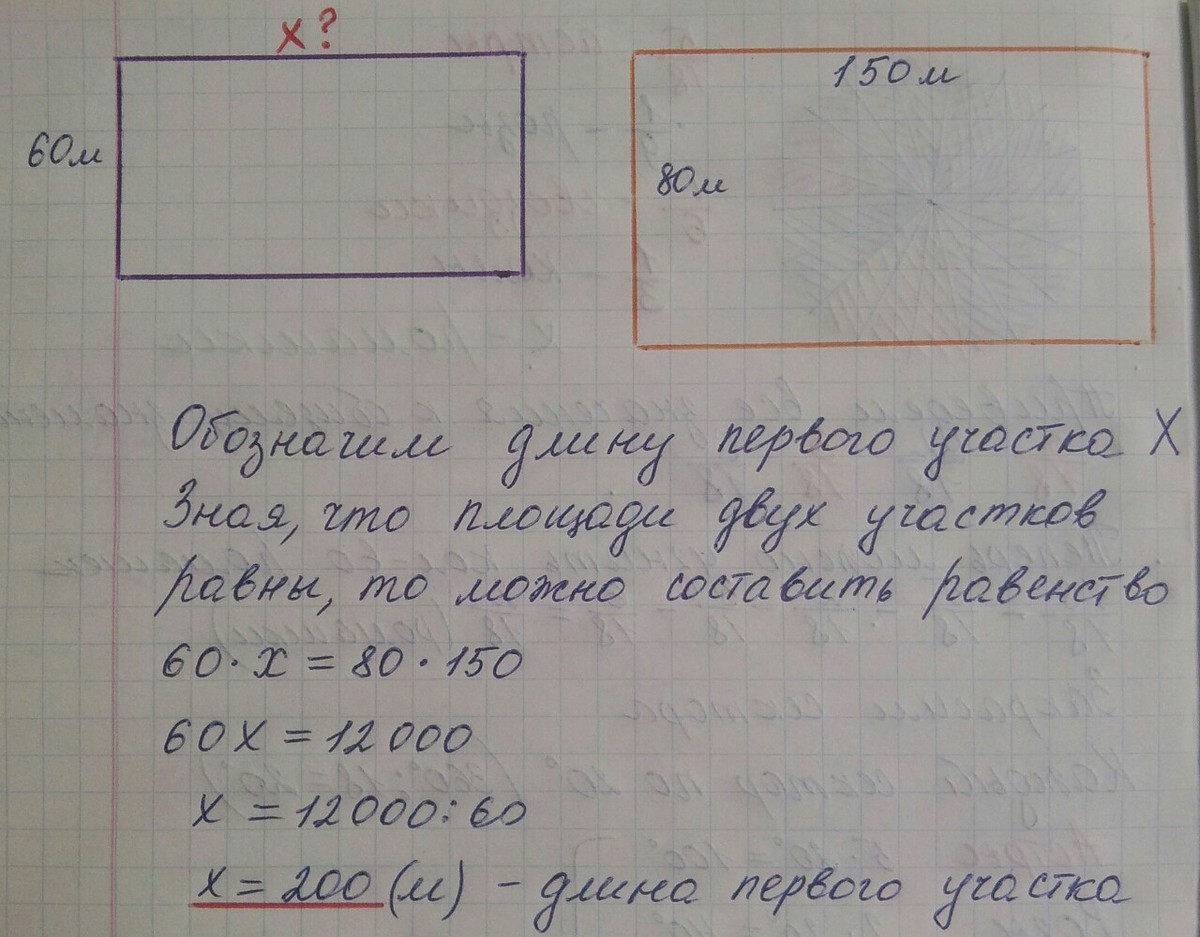 х?
60м
150м
80м
Обозначим длину первого участка X
Зная, что площади двух участков
равны, то можно составить равенство
60·x = 80·150
60x = 12000
x = 12000:60
x = 200 (м) - длина первого участка